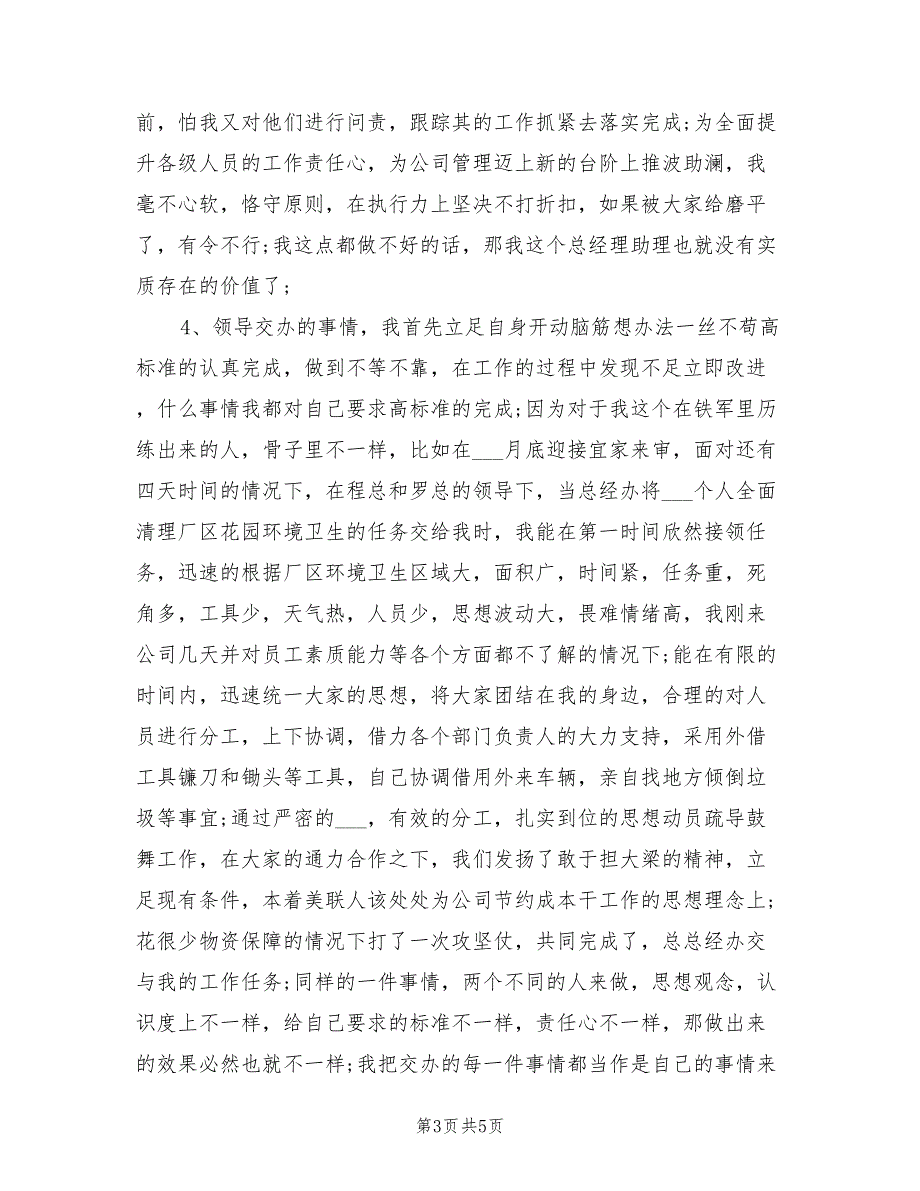 前，怕我又对他们进行问责，跟踪其的工作抓紧去落实完成;为全面提
升各级人员的工作责任心，为公司管理迈上新的台阶上推波助澜，我
毫不心软，恪守原则，在执行力上坚决不打折扣，如果被大家给磨平
了，有令不行;我这点都做不好的话，那我这个总经理助理也就没有实
质存在的价值了;
4、领导交办的事情，我首先立足自身开动脑筋想办法一丝不苟高
标准的认真完成，做到不等不靠，在工作的过程中发现不足立即改进
，什么事情我都对自己要求高标准的完成;因为对于我这个在铁军里历
练出来的人，骨子里不一样，比如在___月底迎接宜家来审，面对还有
四天时间的情况下，在程总和罗总的领导下，当总经办将___个人全面
清理厂区花园环境卫生的任务交给我时，我能在第一时间欣然接领任
务，迅速的根据厂区环境卫生区域大，面积广，时间紧，任务重，死
角多，工具少，天气热，人员少，思想波动大，畏难情绪高，我刚来
公司几天并对员工素质能力等各个方面都不了解的情况下;能在有限的
时间内，迅速统一大家的思想，将大家团结在我的身边，合理的对人
员进行分工，上下协调，借力各个部门负责人的大力支持，采用外借
工具镰刀和锄头等工具，自己协调借用外来车辆，亲自找地方倾倒垃
圾等事宜;通过严密的___，有效的分工，扎实到位的思想动员疏导鼓
舞工作，在大家的通力合作之下，我们发扬了敢于担大梁的精神，立
足现有条件，本着美联人该处处为公司节约成本干工作的思想理念上;
花很少物资保障的情况下打了一次攻坚仗，共同完成了，总总经办交
与我的工作任务;同样的一件事情，两个不同的人来做，思想观念，认
识度上不一样，给自己要求的标准不一样，责任心不一样，那做出来
的效果必然也就不一样;我把交办的每一件事情都当作是自己的事情来
第3页共5页